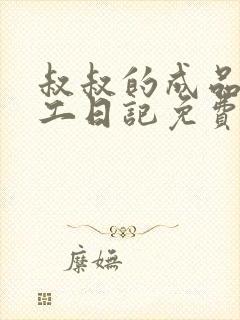 叔叔的成品
工日記免費
糜嫵